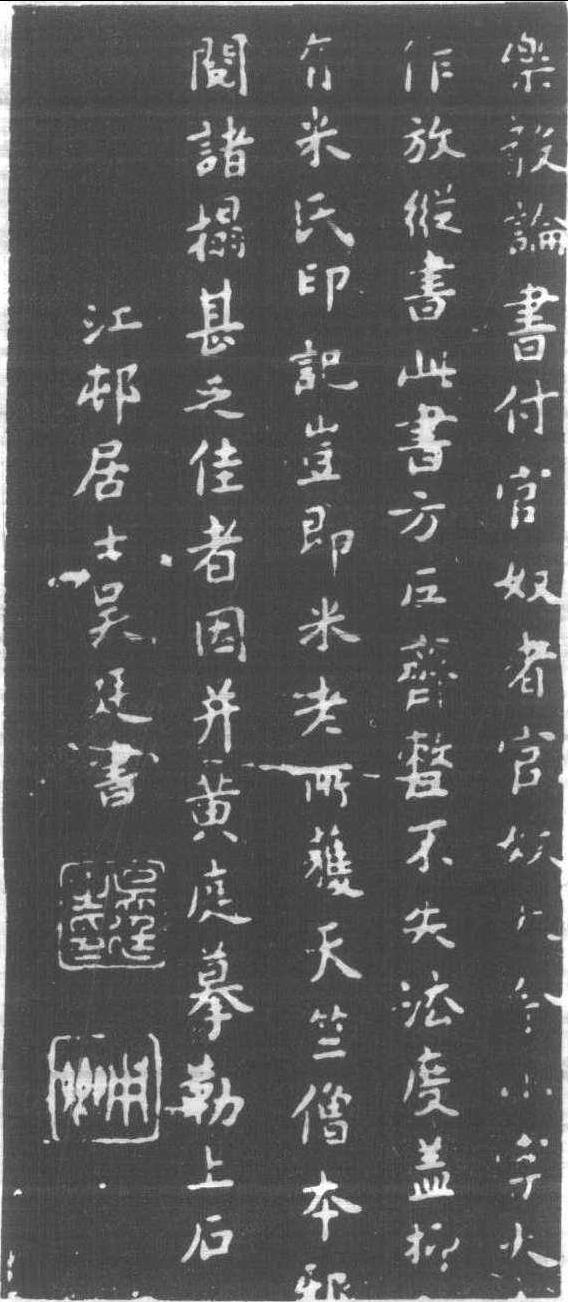 樂毅論書付官奴者官奴令小字大
作放縱書此書方正齊整不失法度蓋抑
有米氏印記豈即米老所獲天竺僧本邪
閱諸搨甚乏佳者因并黃庭摹勒上石
江邨居士吳廷書